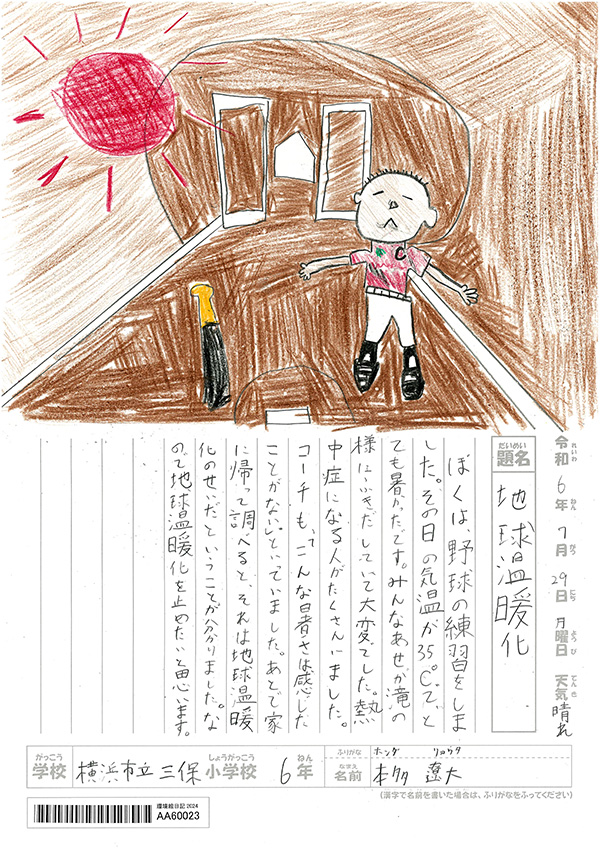 令和6年7月29日月曜日 天気 晴れ
れいわ ねん がつ にち ようび てんき
だいめい
題名 地球温暖化
ぼくは、野球の練習をしま
した。その日の気温が35℃で、と
ても暑かったです。みんなあせが滝の
様にふきだしていて大変でした。熱
中症になる人がたくさんいました。
コーチも、「こんな暑さは感じた
ことがない」といっていました。あとで家
に帰って調べると、それは地球温暖
化のせいだということが分かりました。な
ので地球温暖化を止めたいと思います。
がっこう しょうがっこう ねん ふりがな ホンダ リョウタ
学校 横浜市立 三保 小学校 6年 なまえ 名前 本多 遼大
(漢字で名前を書いた場合は、ふりがなをふってください)
環境絵日記 2024
AA60023
C